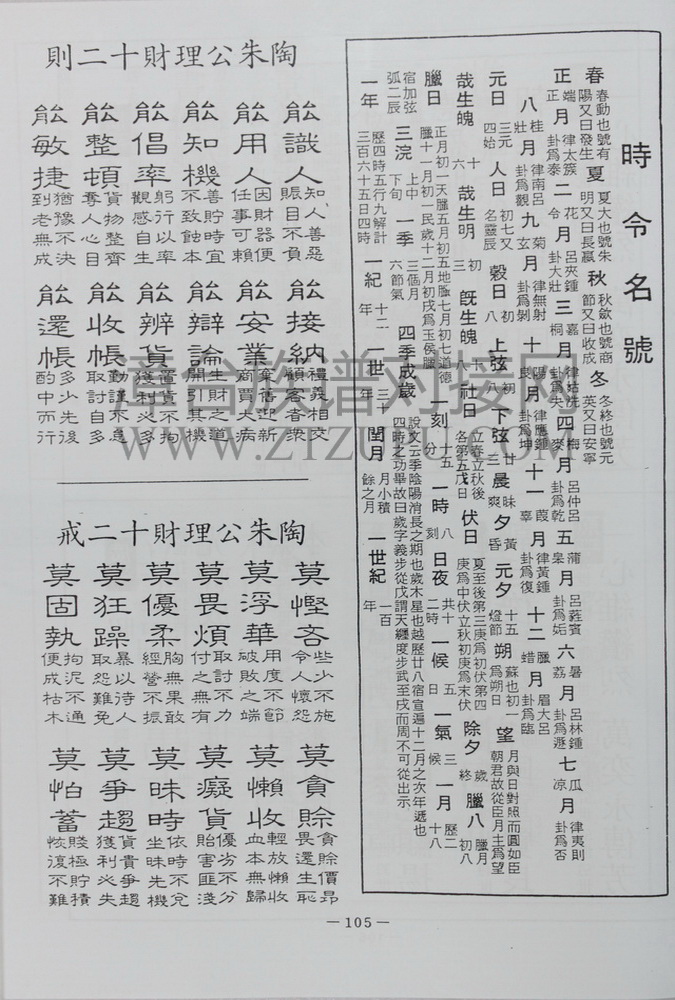 時令名號
春 春動也號有陽又曰發生 夏 夏大也號朱明又曰長嬴 秋 秋斂也號商節又曰收成 冬 冬終也號元英又曰安寧
正月 端 律太簇 卦爲泰 二月 花令 呂夾鍾 卦大壯 三月 嘉桐 律姑洗 卦爲夬 四月 梅麥 呂仲呂 卦爲乾 五月 蒲皋 呂蕤賓 卦爲姤 六月 暑荔 呂林鍾 卦爲遯 七月 瓜凉 律夷則 卦爲否
八月 桂壯 律南呂 卦爲觀 九月 菊玄 律無射 卦爲剝 十月 陽良 律應鍾 卦爲坤 十一月 葭辜 律黃鍾 卦爲復 十二月 臘蜡 眉大呂 卦爲臨
元日 三元四始 人日 初七又名靈辰 穀日 初八 上弦 初八 下弦 廿三 晨 昧爽 夕 黃昏 元夕 十五燈節 朔 蘇也初一爲朔日 望 月與日對照而圓如臣朝君故從臣月主爲望
哉生魄 十六 哉生明 初三 旣生魄 十八 社日 立春立秋後各第五戊日 伏日 夏至後第三庚爲初伏第四庚爲中伏立秋初庚爲末伏 除夕 歲終 臘八 臘月初八
臘日 正月初一天臘五月初五地臘七月初七道德臘十一月初一民歲十二月初戌爲玉侯臘 一刻 十五分 一時 八刻 日夜 共十二時 一候 五日 一氣 三候 一月 歷二十八
宿加弦弧二辰 三浣 上中下旬 一季 三個月六節氣 四季成歲 說文云季陰陽消長之期也歲木星也越歷廿八宿宣遍十二月之次年遞也四時之功畢故曰歲字義步從戊謂天纏度步武至戌而周不可從出示
一年 歷四時五行九解計三百六十五日四時 一紀 十二年 一世 三十年 閏月 月小積餘之月 一世紀 一百年
陶朱公理財十二則
能識人 知人善惡 賬目不負
能用人 因財器便 任事可賴
能知機 善貯時宜 不致蝕本
能倡率 躬行以率 觀感自生
能整頓 貨物整齊 奪人心目
能敏捷 猶豫不決 到老無成
能接納 禮義相交 顧客者衆
能安業 棄舊迎新 商賈大病
能辯論 生財之道 開引其機
能辨貨 置貨不拘 獲利必多
能收帳 勤謹不怠 取討自多
能還帳 多少先後 酌中而行
陶朱公理財十二戒
莫慳吝 些少不施 令人懷怨
莫浮華 用度不節 破敗之端
莫畏煩 取討不力 付之無有
莫優柔 胸無果敢 經營不振
莫狂躁 暴以待人 取怨難免
莫固執 拘泥不通 便成枯木
莫貪賒 貪賒價昂 畏還生恥
莫懶收 輕放懶收 血本無歸
莫癡貨 優劣不分 貽害匪淺
莫昧時 依時不兌 坐昧先機
莫爭趨 貨貴爭趨 獲利必失
莫怕蓄 賤極貯積 恢復不難
尋台族谱对接网
WWW.ZIZUPU.COM
—105—